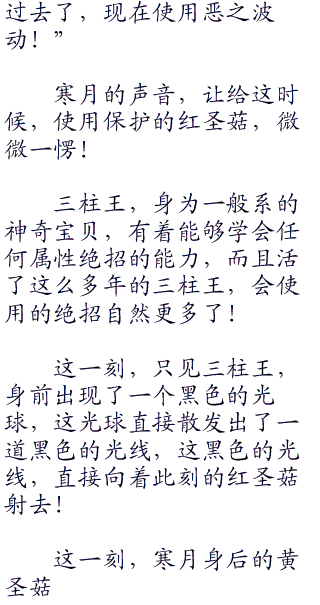 过去了，现在使用恶之波
动！”
寒月的声音，让给这时
候，使用保护的红圣菇，微
微一愣！
三柱王，身为一般系的
神奇宝贝，有着能够学会任
何属性绝招的能力，而且活
了这么多年的三柱王，会使
用的绝招自然更多了！
这一刻，只见三柱王，
身前出现了一个黑色的光
球，这光球直接散发出了一
道黑色的光线，这黑色的光
线，直接向着此刻的红圣菇
射去！
这一刻，寒月身后的黄
圣菇